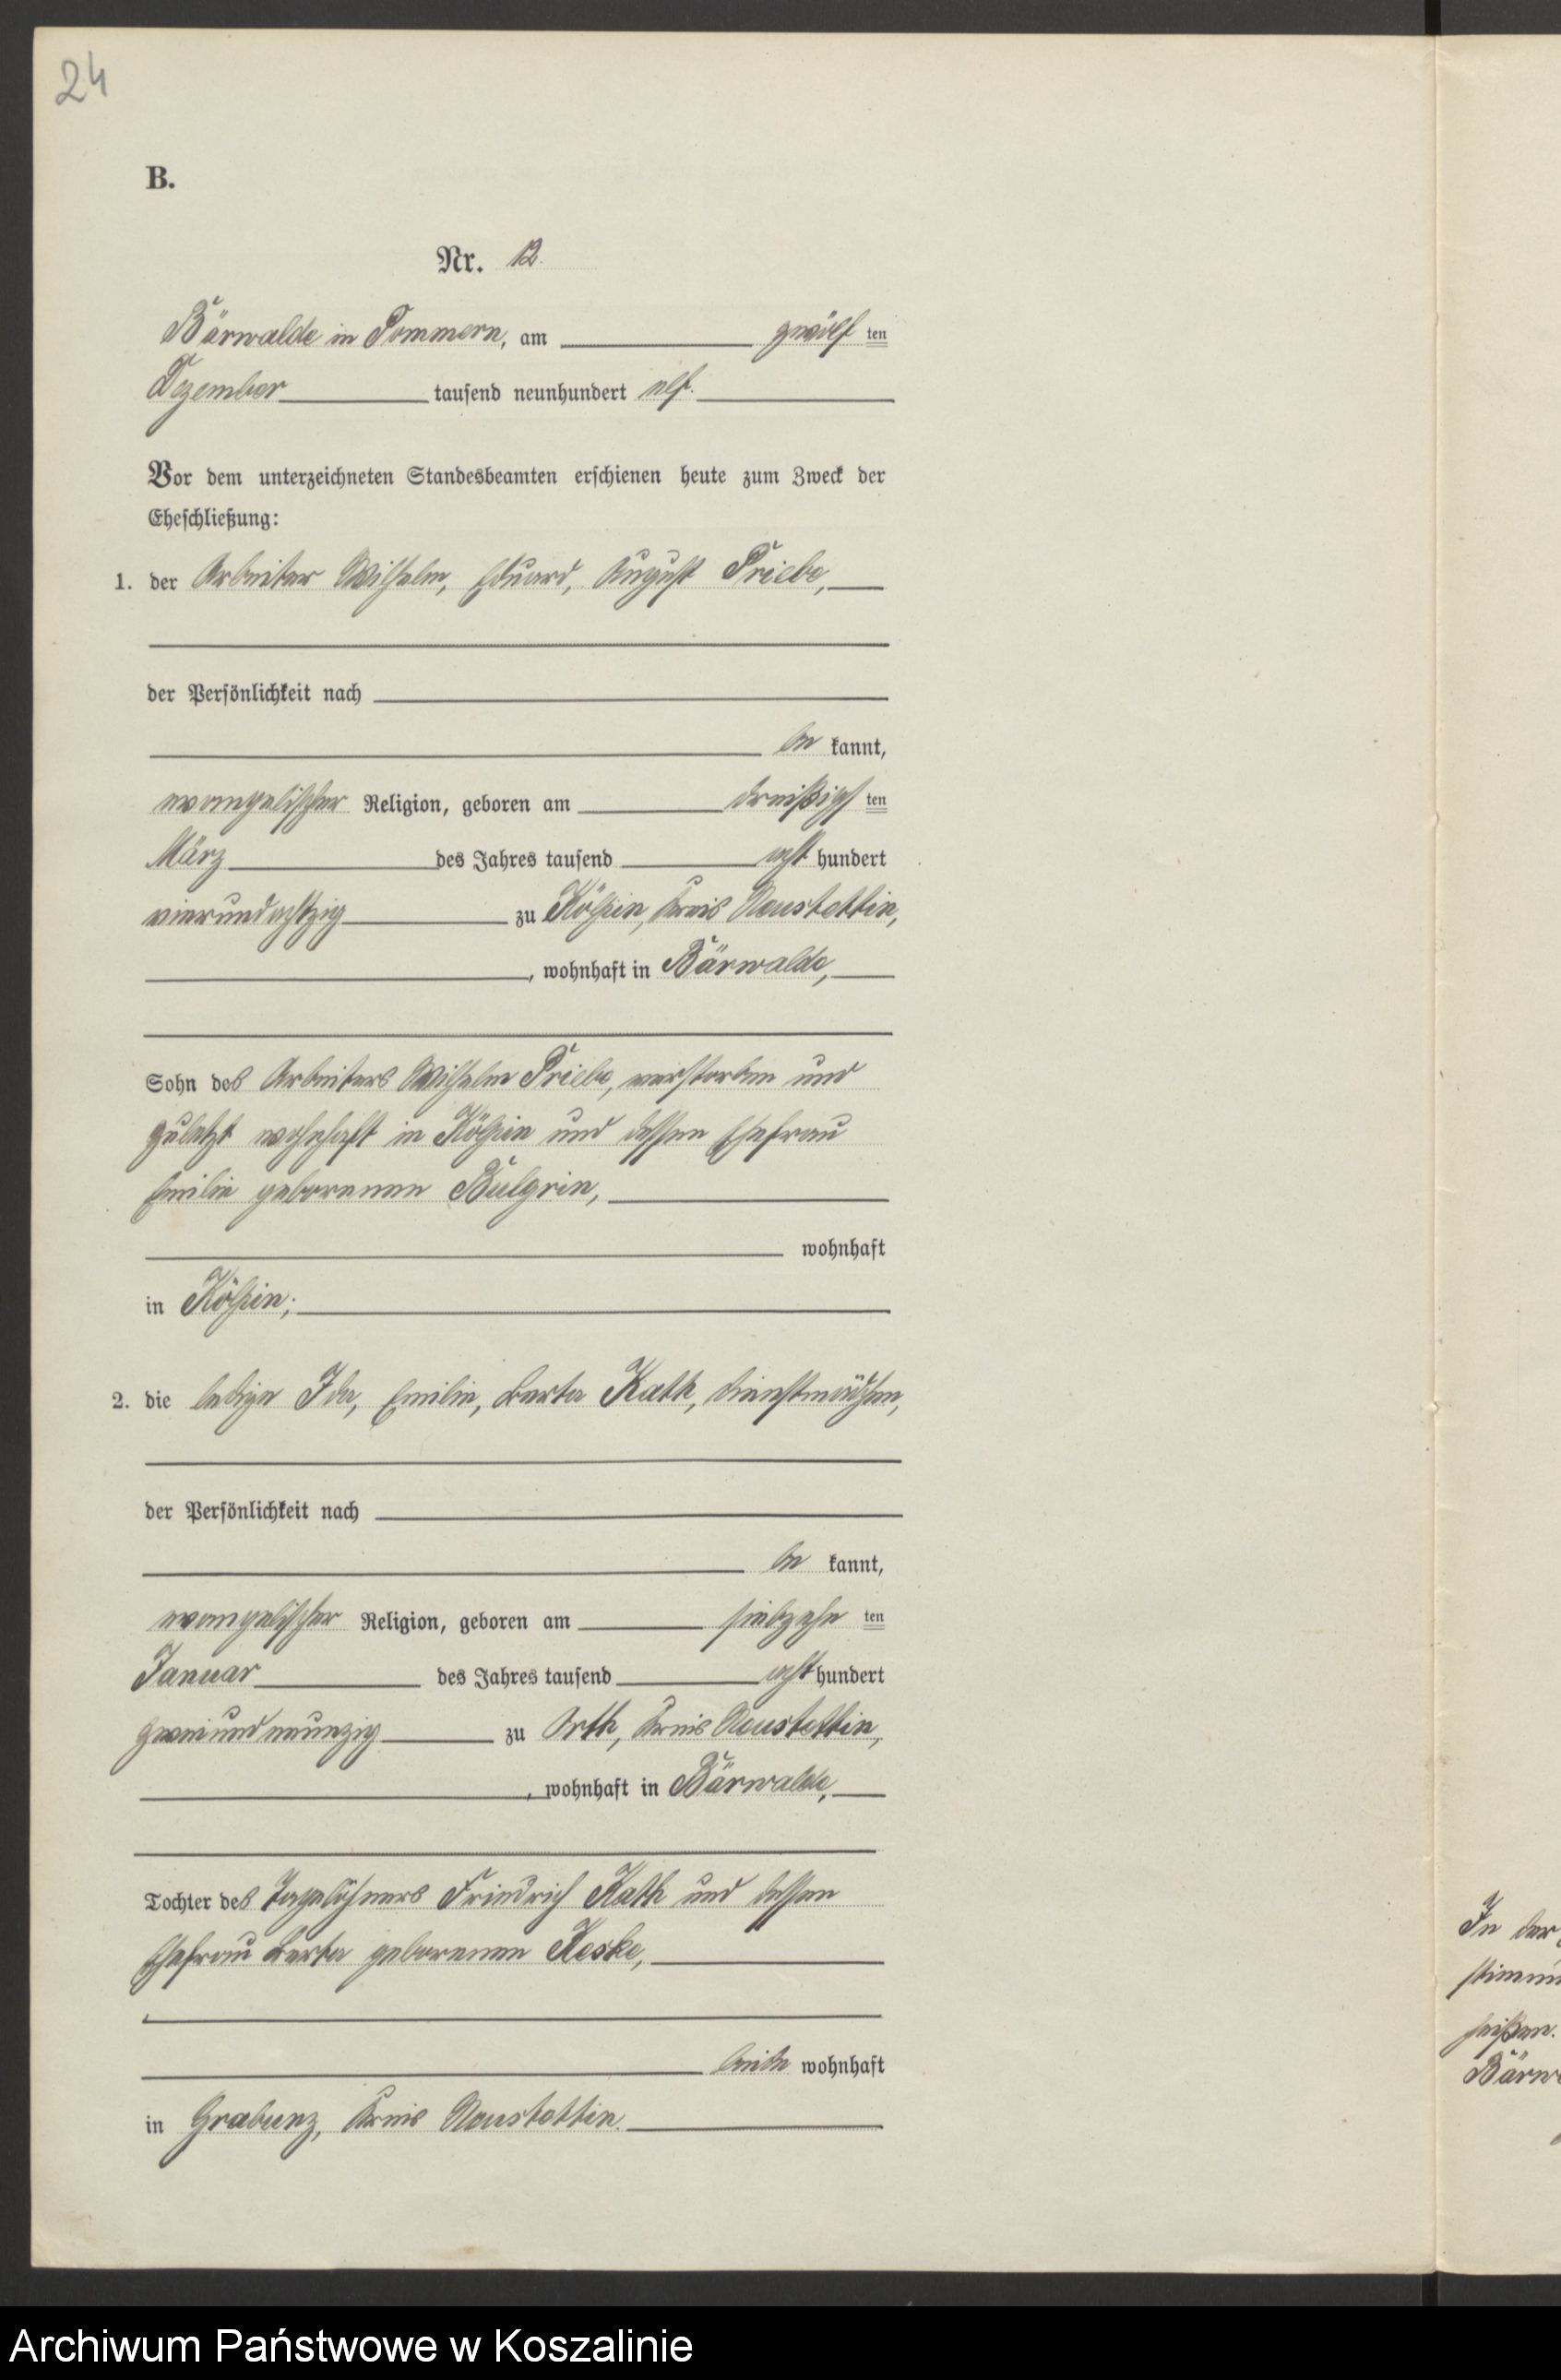 24
B.
Nr. 12
Bärwalde in Pommern, am zwölf ten
Dezember tausend neunhundert elf.
Vor dem unterzeichneten Standesbeamten erschienen heute zum Zweck der
Eheschließung:
1. der Arbeiter Wilhelm, Eduard, August Priebe,
der Persönlichkeit nach
be kannt,
evangelischer Religion, geboren am dreißigs ten
März des Jahres tausend acht hundert
vierundachtzig zu Kölpin, Kreis Neustettin,
, wohnhaft in Bärwalde,
Sohn des Arbeiters Wilhelm Priebe, verstorben und
zuletzt wohnhaft in Kölpin und dessen Ehefrau
Emilie geborenen Bulgrin,
wohnhaft
in Kölpin;
2. die ledige Ida, Emilie, Berta Kath, Dienstmädchen,
der Persönlichkeit nach
be kannt,
evangelischer Religion, geboren am siebzehn ten
Januar des Jahres tausend acht hundert
zweiundneunzig zu Orth, Kreis Neustettin,
, wohnhaft in Bärwalde,
Tochter des Tagelöhners Friedrich Kath und dessen
Ehefrau Berta geborenen Keske,
beide wohnhaft
in Grabunz, Kreis Neustettin.
In der
heißen.
Archiwum Państwowe w Koszalinie